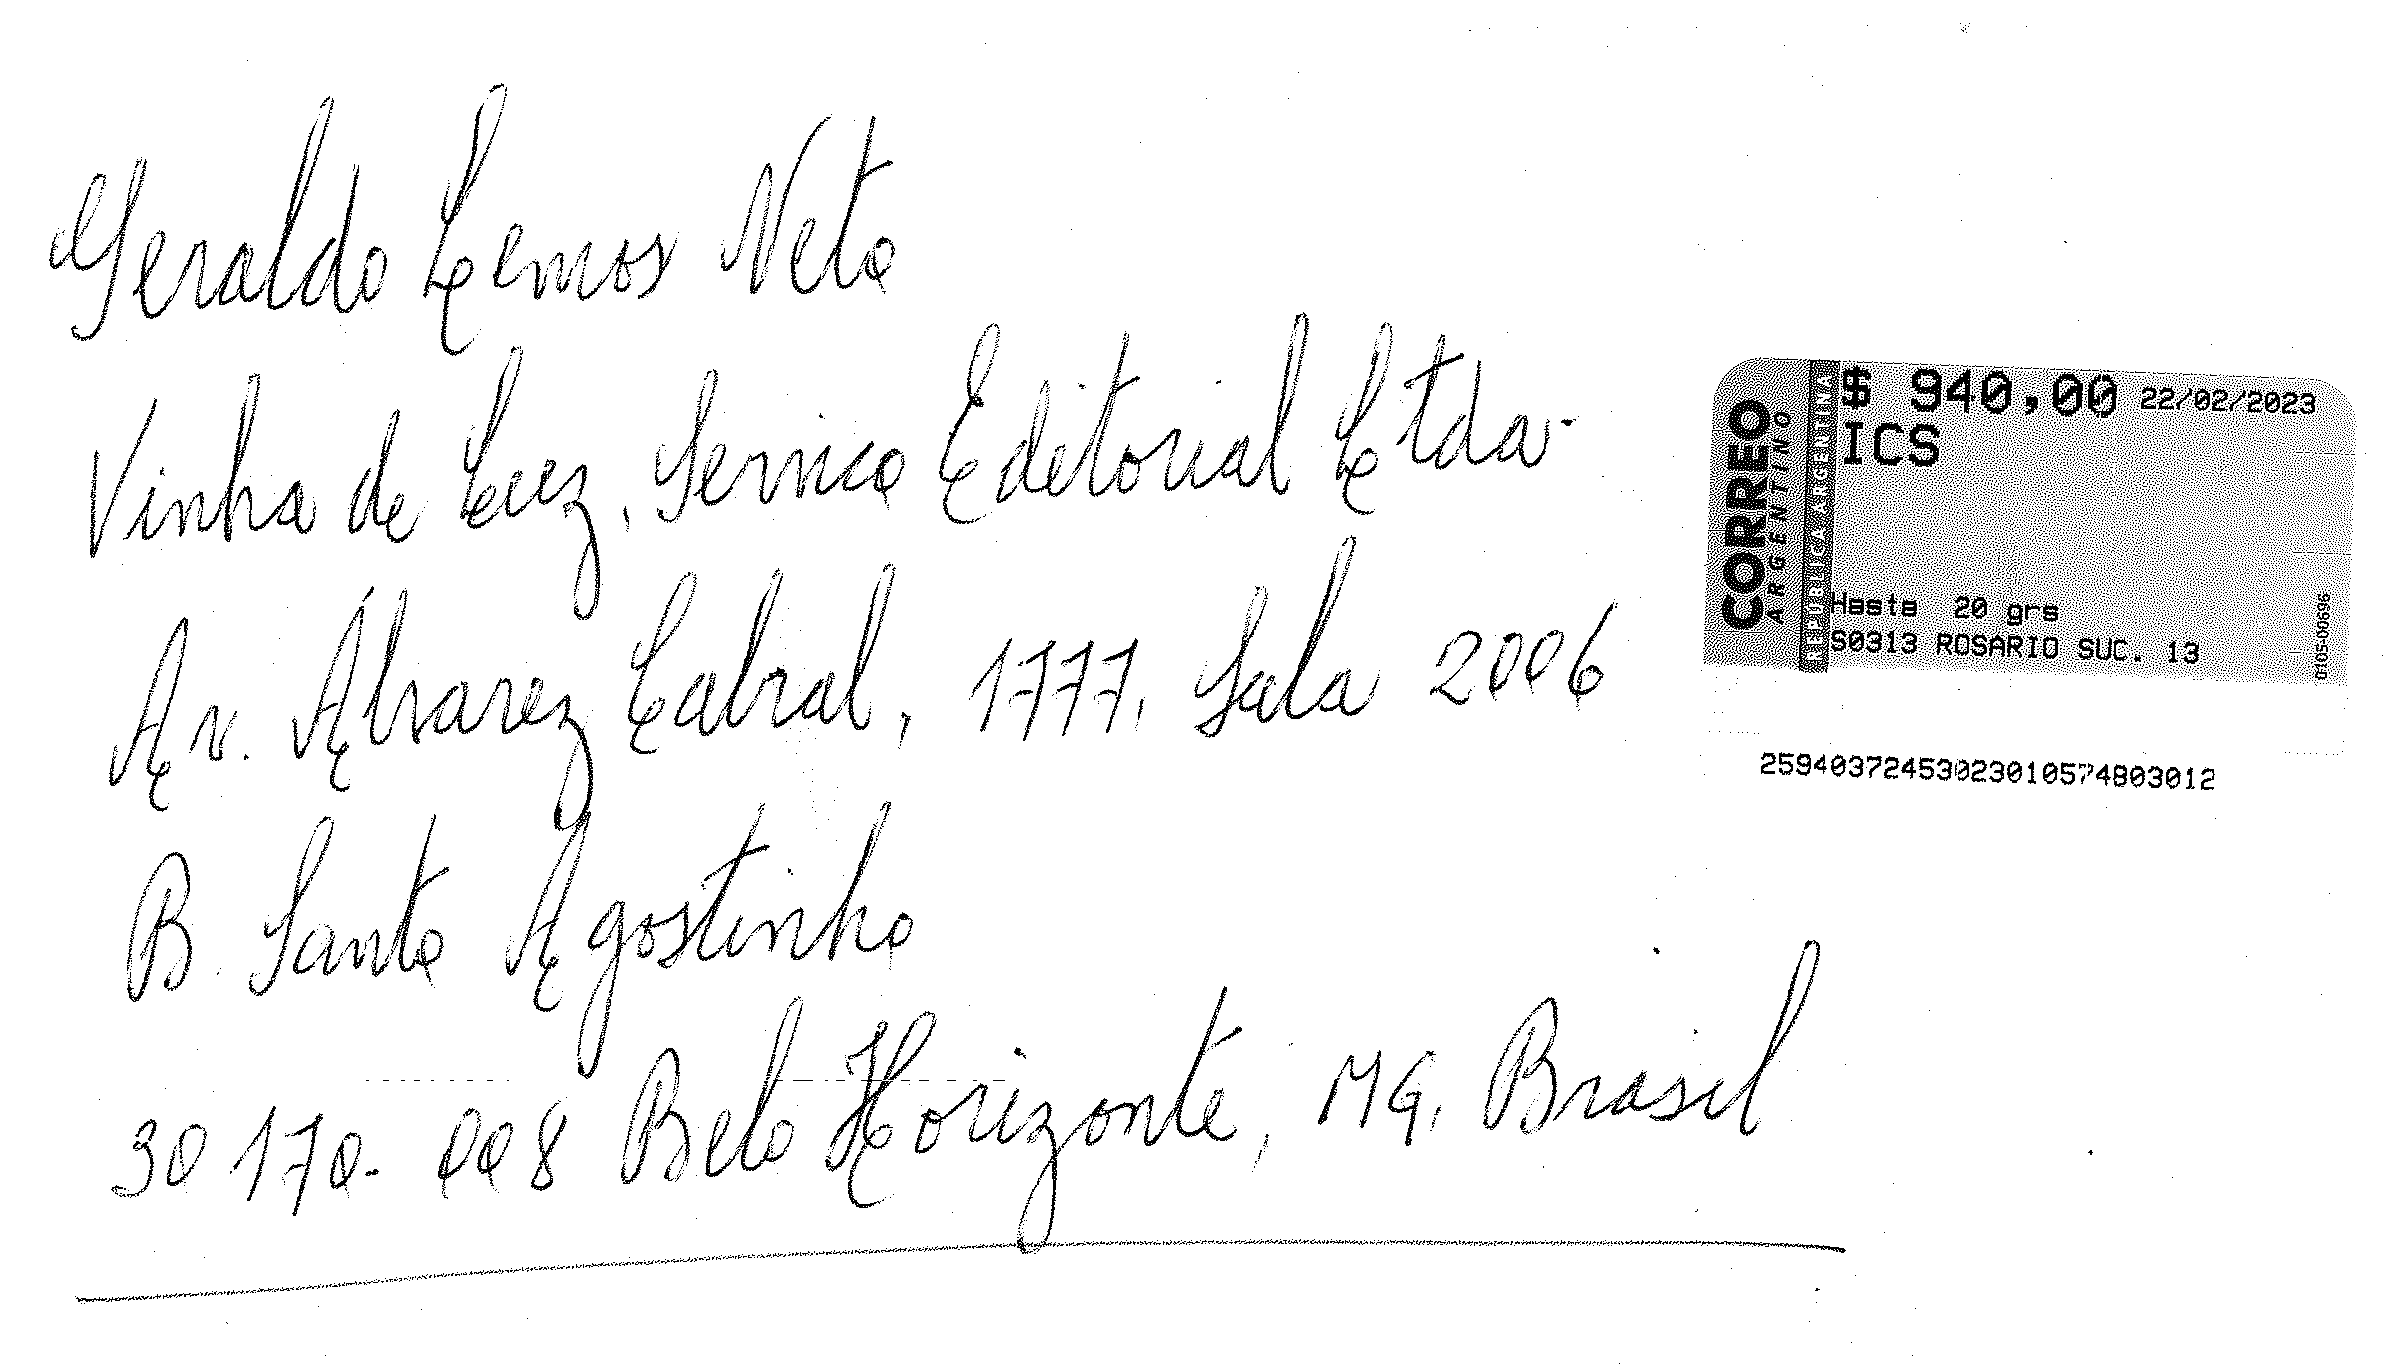 Geraldo Lemos Neto
Vinha de Luz, Servico Editorial Ltda.
Av. Álvarez Cabral, 1777, Sala 2006
B. Santo Agostinho
30170-008 Belo Horizonte, MG, Brasil
CORREO
ARGENTINO
REPUBLICA ARGENTINA
$ 940,00 22/02/2023
ICS
Hasta 20 grs
S0313 ROSARIO SUC. 13
0105-00696
25940372453023010574803012